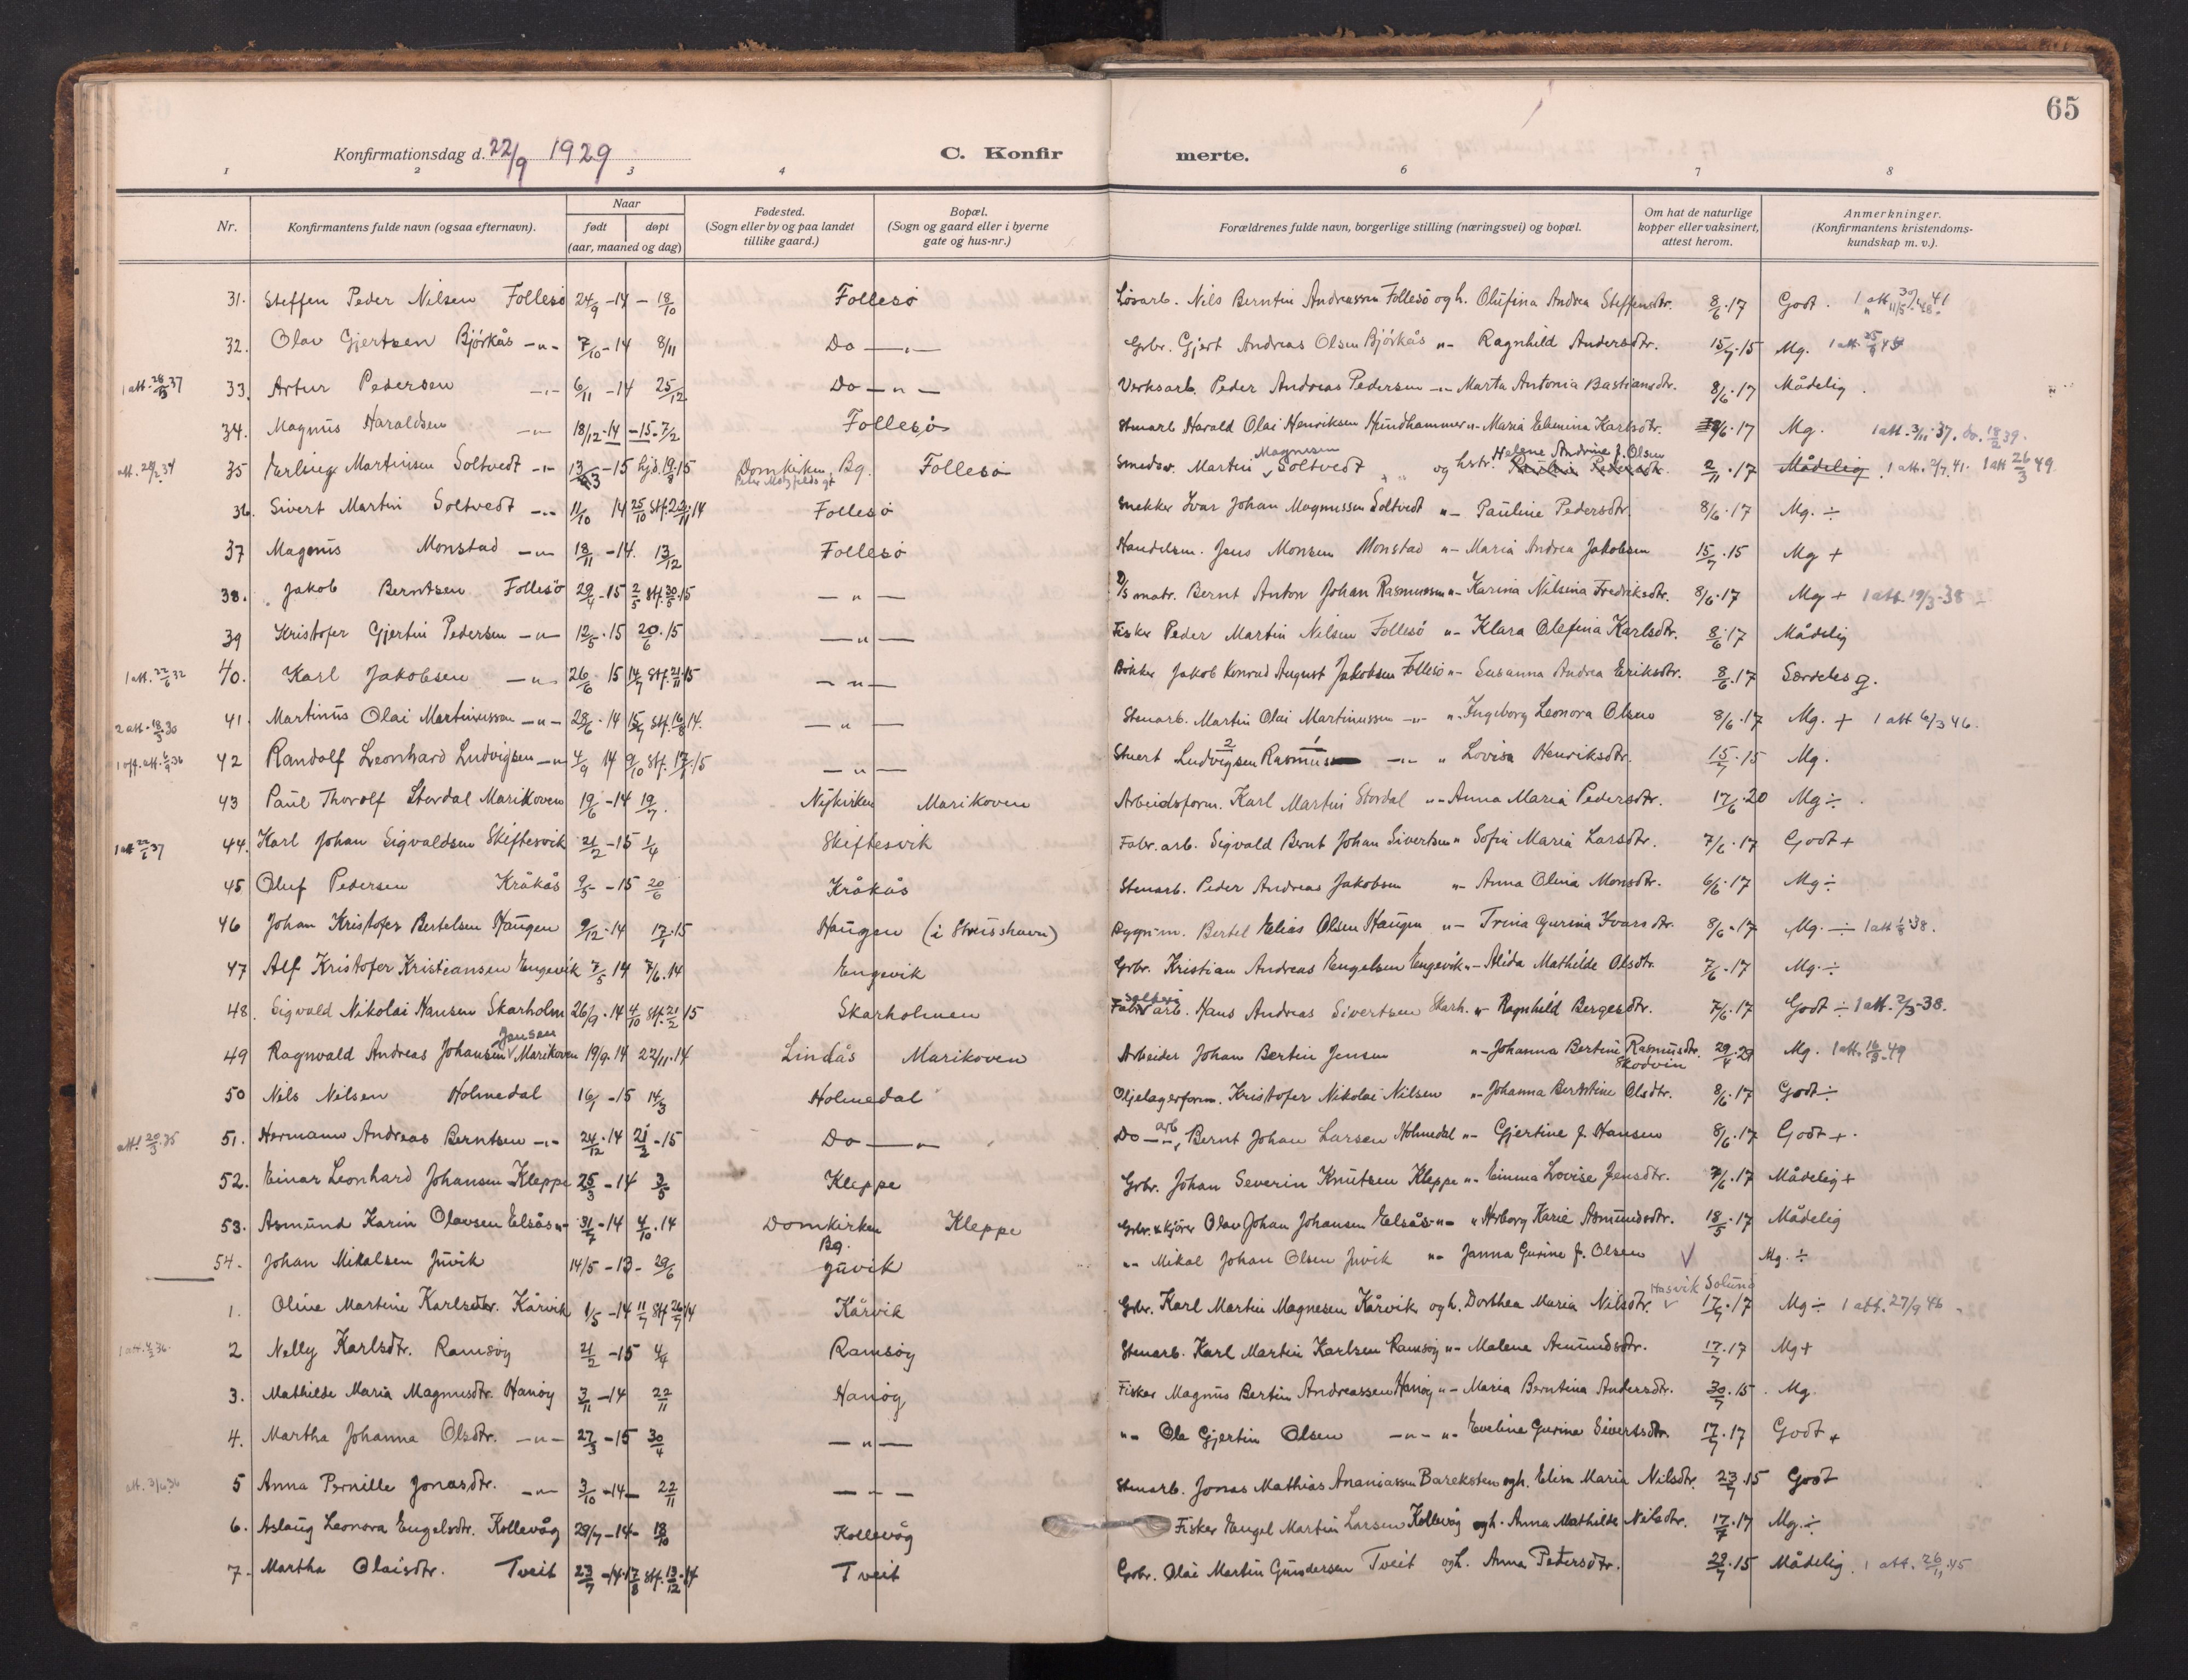 65
Konfirmationsdag d. 22/9 1929
C. Konfir merte.
1 2 3 4 6 7 8
Nr. Konfirmantens fulde navn (ogsaa efternavn). Naar født døpt (aar, maaned og dag) Fødested. (Sogn eller by og paa landet tillike gaard.) Bopæl. (Sogn og gaard eller i byerne gate og hus-nr.) Forældrenes fulde navn, borgerlige stilling (næringsvei) og bopæl. Om hat de naturlige kopper eller vaksinert, attest herom. Anmerkninger. (Konfirmantens kristendomskundskap m. v.).
31. Steffen Peder Nilsen Follesö 24/9 -14 - 18/10 Follesö Løsarb. Nils Berntin Andreassen Follesö og h. Olufina Andrea Steffensdtr. 8/6.17 Godt.
32. Olav Gjertsen Björkås -"- 7/10-14 8/11 Do -"- Grbr. Gjert Andreas Olsen Björkås "- Ragnhild Andersdtr. 15/7.15 Mg.
1 att. 28/5 37 33. Artur Pedersen -"- 6/11 -14 25/12 Do -"- Verksarb. Peder Andreas Pedersen -"- Marta Antonia Bastiansdtr. 8/6.17 Mådelig.
34. Magnus Haraldsen -"- 18/12-14 -15-7/2 Follesö Stenarb Harald Olai Henriksen Hundhammer "- Maria Elemina Karlsdtr. 8/6.17 Mg. 1 att. 3/11-37, do. 18/2 39.
35 Erling Martinsen Soltvedt -"- 13/3 -15 hjd. 19/8.15 Domkirken, Bg. Follesö Smedsv. Martin Magnesen Soltvedt og hstr. Helene Andrine f. Olsen Paulin Pedersdtr. 2/11.17 Mådelig 1 att. 2/7 41. 1 att 26/3 49
36. Sivert Martin Soltvedt -"- 11/10 14 25/10 stf. 22/11 14 Follesö Snekker Ivar Johan Magnussen Soltvedt "- Pauline Pedersdtr. 8/6.17 Mg. ÷
37 Magnus Monstad -"- 18/11 -14. 13/12 Follesö Handelsm. Jens Monsen Monstad "- Maria Andrea Jakobsen 15/7.15 Mg +
38. Jakob Berntsen Follesö 29/4-15 2/5 stf. 30/5 15 -"- D/S matr. Bernt Anton Johan Rasmussen "- Karina Nilsina Fredriksdtr. 8/6.17 Mg + 1 att. 19/3-38
39 Kristofer Gjertin Pedersen -"- 12/5.15 20/6.15 -"- Fisker Peder Martin Nilsen Follesö "- Klara Olefina Karlsdtr. 8/6.17 Mådelig
1 att. 22/6 32 40. Karl Jakobsen -"- 26/6 15 14/7 stf. 21/11 15 -"- Bökker Jakob Konrad August Jakobsen Follesö "- Susanna Andrea Eriksdtr. 8/6.17 Særdeles g.
2 att. 18/3 30 41. Martinus Olai Martinussen -"- 28/6.14 15/7 stf. 16/8 14. -"- Stenarb. Martin Olai Martinussen -"- "- Ingeborg Leonora Olsen 8/6.17 Mg. + 1 att 6/3 46.
42 Randolf Leonhard Ludvigsen -"- 4/9 14 9/10 stf. 15 -"- Stuert Ludvigsen Rasmus -"- " Lovisa Henriksdtr. 15/7.15 Mg.
43 Paul Thorolf Stordal Marikoven 19/6 -14 19/7. Nykirken Marikoven Arbeidsform. Karl Martin Stordal "- Anna Maria Pedersdtr. 17/6.20 Mg ÷.
1 att 22/6 37 44. Karl Johan Sigvaldsen Skiftesvik 21/2 -15 1/4 Skiftesvik Fabr. arb. Sigvald Bernt Johan Sivertsen " Sofia Maria Larsdtr. 7/6.17 Godt +
45 Oluf Pedersen Kråkås 9/5 -15 20/6 Kråkås Stenarb. Peder Andreas Jakobsen "- Anna Olina Monsdtr. 6/6.17 Mg ÷
46 Johan Kristofer Bertelsen Haugen 9/12.14 17/1.15 Haugen (i Strusshavn) Bygn.m. Bertel Elias Olsen Haugen "- Trina Gurina Ivarsdtr. 8/6.17 Mg. ÷ 1 att 38.
47 Alf Kristofer Kristiansen Engevik 7/5 14 7/6.14 Engevik Grbr. Kristian Andreas Engelsen Engevik "- Alida Mathilde Olsdtr. 7/6.17 Mg. ÷
48. Sigvald Nikolai Hansen Skarholm 26/9.14 4/10 stf. 21/2 15 Skarholmen Fabr arb. Hans Andreas Sivertsen Skarh. "- Ragnhild Bergesdtr. 7/6.17 Godt ÷ 1 att. 2/3-38.
49 Ragnvald Andreas Johansen Jensen Marikoven 19/9.14 22/11.14 Lindås Marikoven Arbeider Johan Bertin Jensen "- Johanna Bertine Rasmusdtr. Skodvin 29/4.29 Mg. 1 att. 49
50 Nils Nilsen Holmedal 16/1 -15 14/3 Holmedal Oljelagerform. Kristofer Nikolai Nilsen "- Johanna Berntine Olsdtr. 8/6.17 Godt ÷
att. 20/3.35 51. Hermann Andreas Berntsen -"- 24/12.14 21/2-15 Do -"- Do -"- arb. Bernt Johan Larsen Holmedal "- Gjertine f. Hansen 8/6.17 Godt +.
52. Einar Leonhard Johansen Kleppe 25/3 -14 3/5 Kleppe Grbr. Johan Severin Knutsen Kleppe "- Emma Lovise Jensdtr. 7/6.17 Mådelig +
53. Asmund Karin Olavsen Elsås -"- 31/7 -14 4/10.14 Domkirken Bg. Kleppe Grbr. & kjörer Olav Johan Johansen Elsås -"- " Herborg Karie Asmundsdtr. 18/5.17 Mådelig
54. Johan Mikalsen Juvik 14/5 -13- 29/6 Juvik "- Mikal Johan Olsen Juvik "- Janna Gurine f. Olsen V Mg. ÷
1. Oline Martine Karlsdtr. Kårvik 1/5 -14 11/7 stf 26/7 14 Kårvik Grbr. Karl Martin Magnesen Kårvik og h. Dorthea Maria Nilsdtr. Hasvik Solund 17/7.17 Mg ÷ 1 att. 27/9 46
2 Nelly Karlsdtr. Ramsöy 21/2 -15 4/4 Ramsöy Stenarb. Karl Martin Karlsen Ramsöy "- Malene Amundsdtr. 17/7.17 Mg +
3. Mathilde Maria Magnusdtr. Hanöy 3/11 -14 22/11 Hanöy Fisker Magnus Bertin Andreassen Hanöy "- Maria Berntina Andersdtr. 30/7.15. Mg.
4. Martha Johanna Olsdtr. -"- 27/3 -15 30/4 -"- "- Ole Gjertin Olsen -"- "- Eveline Gurine Sivertsdtr. 17/7.17 Godt +
5 Anna Pernille Jonasdtr. -"- 3/10 -14- 22/11 -"- Stenarb. Jonas Mathias Ananiassen Bareksten og h. Elisa Maria Nilsdtr. 23/7.15 Godt
6. Aslaug Leonora Engelsdtr. Kollevåg 29/7-14- 18/10 Kollevåg Fisker Engel Martin Larsen Kollevåg og h. Anna Mathilde Nilsdtr. 17/7.17 Mg. ÷
7. Martha Olaisdtr. Tveit 23/7 -14. 17/8 stf. 13/12 14 Tveit Grbr. Olai Martin Gundersen Tveit og h. Anna Petersdtr. 29/7.15 Mådelig. 1 att. 26/11.45